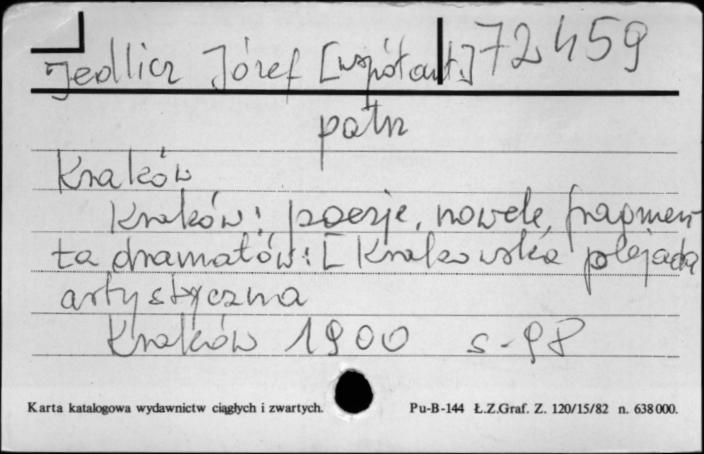 Jedlicz Józef [współaut.] 72459
patrz
Kraków
Kraków: poezje, nowele, fragmen-
ta dramatów: [Krakowska plejada
artystyczna
Kraków 1900 s. 98
Karta katalogowa wydawnictw ciągłych i zwartych. Pu-B-144 Ł.Z.Graf. Z. 120/15/82 n. 638000.